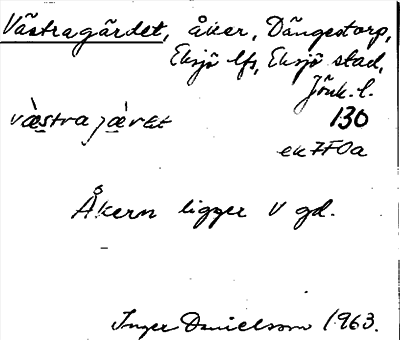 Västragärdet, åker, Dängestorp,
Eksjö lfs, Eksjö stad,
Jönk. l.
væ̀stra jæ̀ret 130
ek 7F0a
Åkern ligger V gd.
Inger Danielsson 1963.